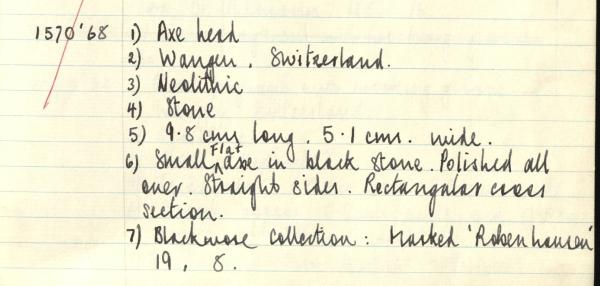 1570'68 1) Axe head
2) Wangen. Switzerland.
3) Neolithic
4) Stone
5) 9.8 cms long. 5.1 cms. wide.
6) Small flat axe in black stone. Polished all
over. Straight sides. Rectangular cross
section.
7) Blackmore Collection: Marked 'Robenhausen'
19, 8.